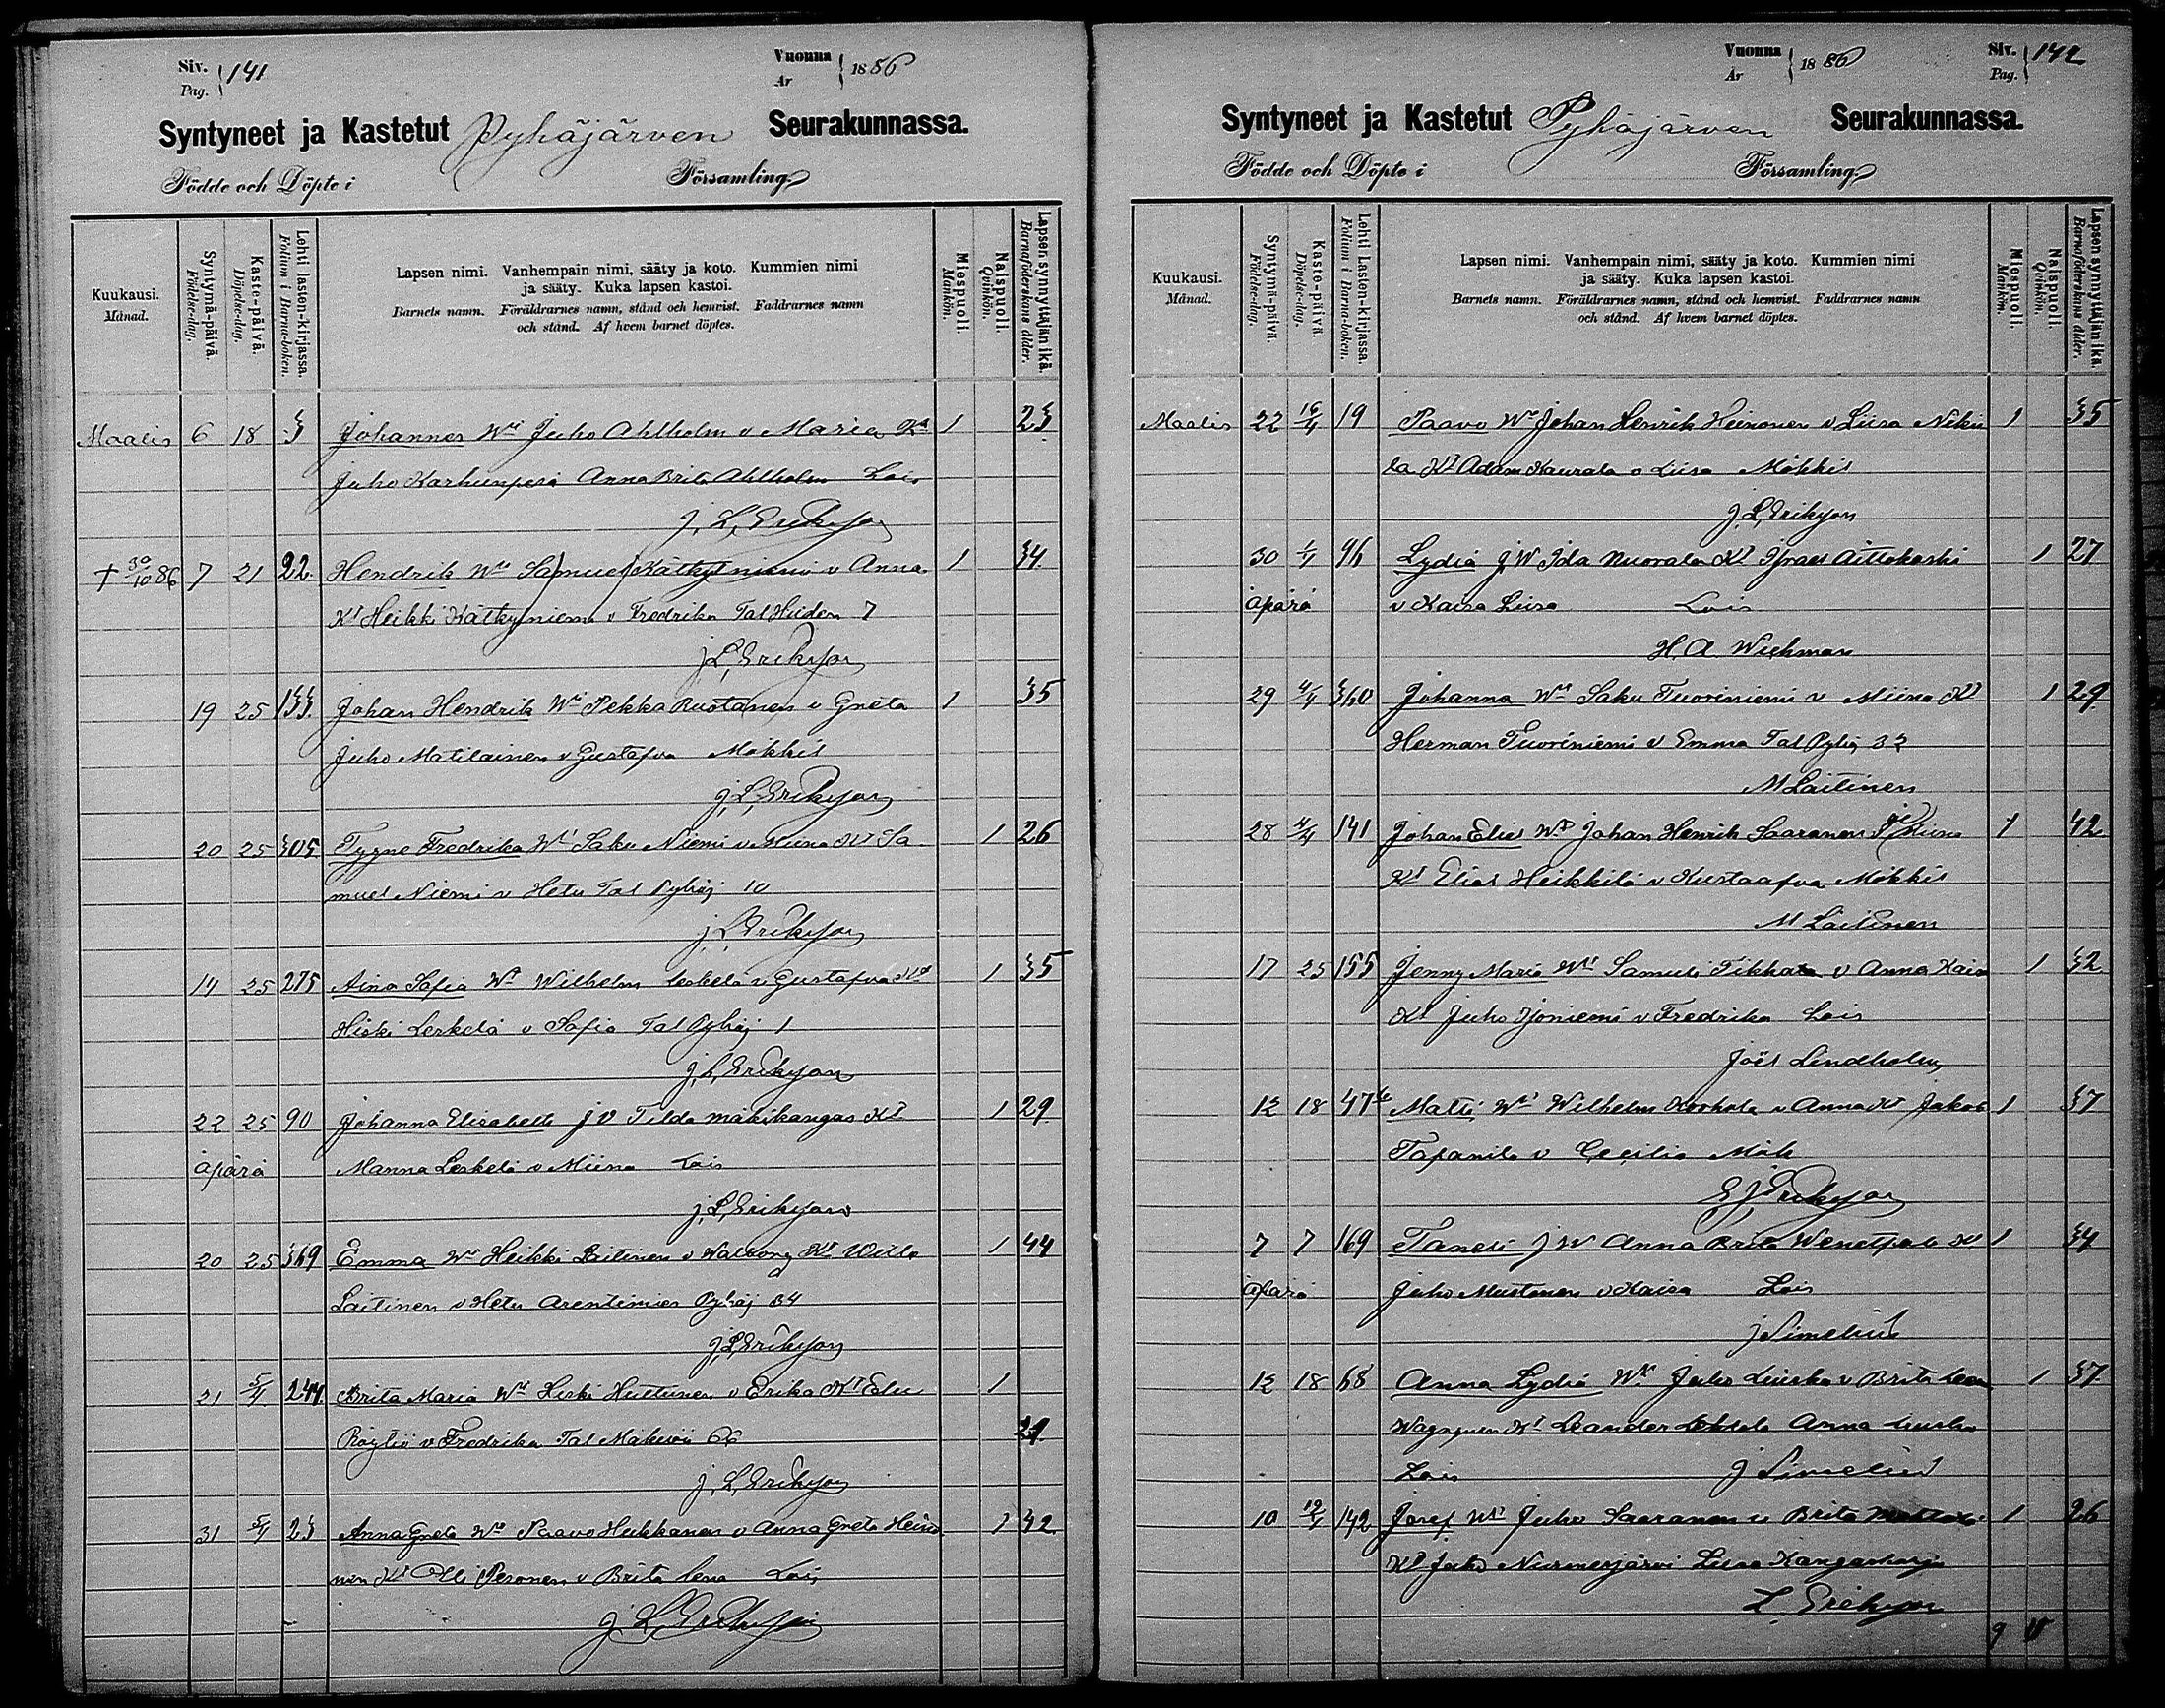 Siv. Pag. } 141
Vuonna År } 1886
Syntyneet ja Kastetut Pyhäjärven Seurakunnassa.
Födde och Döpte i Församling.
Kuukausi. Månad.
Syntymä-päivä. Födelse-dag.
Kaste-päivä. Döpelse-dag.
Lehti lasten-kirjassa. Folium i Barna-boken.
Lapsen nimi. Vanhempain nimi, sääty ja koto. Kummien nimi
ja sääty. Kuka lapsen kastoi.
Barnets namn. Föräldrarnes namn, stånd och hemvist. Faddrarnes namn
och stånd. Af hvem barnet döptes.
Miespuoli. Mankön.
Naispuoli. Qvinkön.
Lapsensynnyttäjän ikä. Barnaföderskans ålder.
Maalis 6 18 3 Johannes Wt Juho Ahlholm v Maria Kt 1 23
Juho Karhunpesä Anna Brita Ahlholm Lois
J. L. Erikson
† 30/10 86 7 21 22. Hendrik Wt Samuel Kätkytniemi v Anna 1 34
Kt Heikki Kätkytniemi v Fredrika Tal Hiiden 7
J. L. Erikson
19 25 133. Johan Hendrik Wt Pekka Ruotanen v Greta 1 35
Juho Matilainen v Gustafva Mökkil
J. L. Erikson
20 25 305 Tyyne Fredrika Wt Saku Niemi v Miina Kt Sa- 1 26
muel Niemi v Hetu Tal Pyhäj 10
J. L. Erikson
14 25 275 Aina Sofia Wt Wilhelm Leskelä v Gustafva Kt 1 35
Hiski Leskelä v Sofia Tal Pyhäj 1
J. L. Erikson
22 25 90 Johanna Elisabeth J V Tilda Mäkikangas Kt 1 29
äpärä Manna Leskelä v Miina Lois
J. L. Erikson
20 25 369 Emma Wt Heikki Laitinen v Walborg Kt Wille 1 44
Laitinen v Hetu Arentimies Pyhäj 34
J. L. Erikson
21 5/4 244 Brita Maria Wt Hiski Huttunen v Erika Kt Eelu 1
Röytiö v Fredrika Tal Mäkiwii 66 29
J. L. Erikson
31 5/4 23 Anna Greta Wt Paavo Hukkanen v Anna Greta Heino- 1 32
nen Kt Olli Pesonen v Brita Lena Lois
J. L. Erikson
Vuonna År } 1886
Siv. Pag. } 142
Syntyneet ja Kastetut Pyhäjärven Seurakunnassa.
Födde och Döpte i Församling.
Kuukausi. Månad.
Syntymä-päivä. Födelse-dag.
Kaste-päivä. Döpelse-dag.
Lehti Lasten-kirjassa. Folium i Barna-boken.
Lapsen nimi. Vanhempain nimi, sääty ja koto. Kummien nimi
ja sääty. Kuka lapsen kastoi.
Barnets namn. Föräldrarnes namn, stånd och hemvist. Faddrarnes namn
och stånd. Af hvem barnet döptes.
Miespuoli. Mankön.
Naispuoli. Qvinkön.
Lapsensynnyttäjän ikä. Barnaföderskans ålder.
Maalis 22 16/4 19 Paavo Wt Johan Henrik Heinonen v Liisa Niku 1 35
la Kt Adam Kaurala v Liisa Mökkil
J. L. Erikson
30 1/4 96 Lydia J W Ida Nuorala Kt Israel Aittokoski 1 27
äpärä v Kaisa Liisa Lois
H. A. Wichman
29 4/4 360 Johanna Wt Saku Tuoriniemi v Miina Kt 1 29
Herman Tuoriniemi v Emma Tal Pyhäj 32
M Laitinen
28 4/4 141 Johan Elias Wt Johan Henrik Saaranen v Miina 1 42
Kt Elias Heikkilä v Kustaafva Mökkil
M Laitinen
17 25 155 Jenny Maria Wt Samuli Tikkala v Anna Kaisa 1 32
Kt Juho Isoniemi v Fredrika Lois
Joël Lindholm
12 18 474 Matti Wt Wilhelm Korhola v Anna Kt Jakob 1 37
Tapanila v Cecilia Mök
E J Erikson
7 7 169 Taneli J W Anna Brita Wenetpalo Kt 1 34
äpärä Juho Mustonen v Kaisa Lois
J Simelius
12 18 68 Anna Lydia Wt Juho Liuska v Brita Leena 1 37
Kt Leander Lehtola Anna Liuska
Lois J Simelius
10 12/4 142 Josef Wt Juho Saaranen v Brita 1 26
Kt Juho Nurmesjärvi Liisa Kangasharju
L. Erikson
9